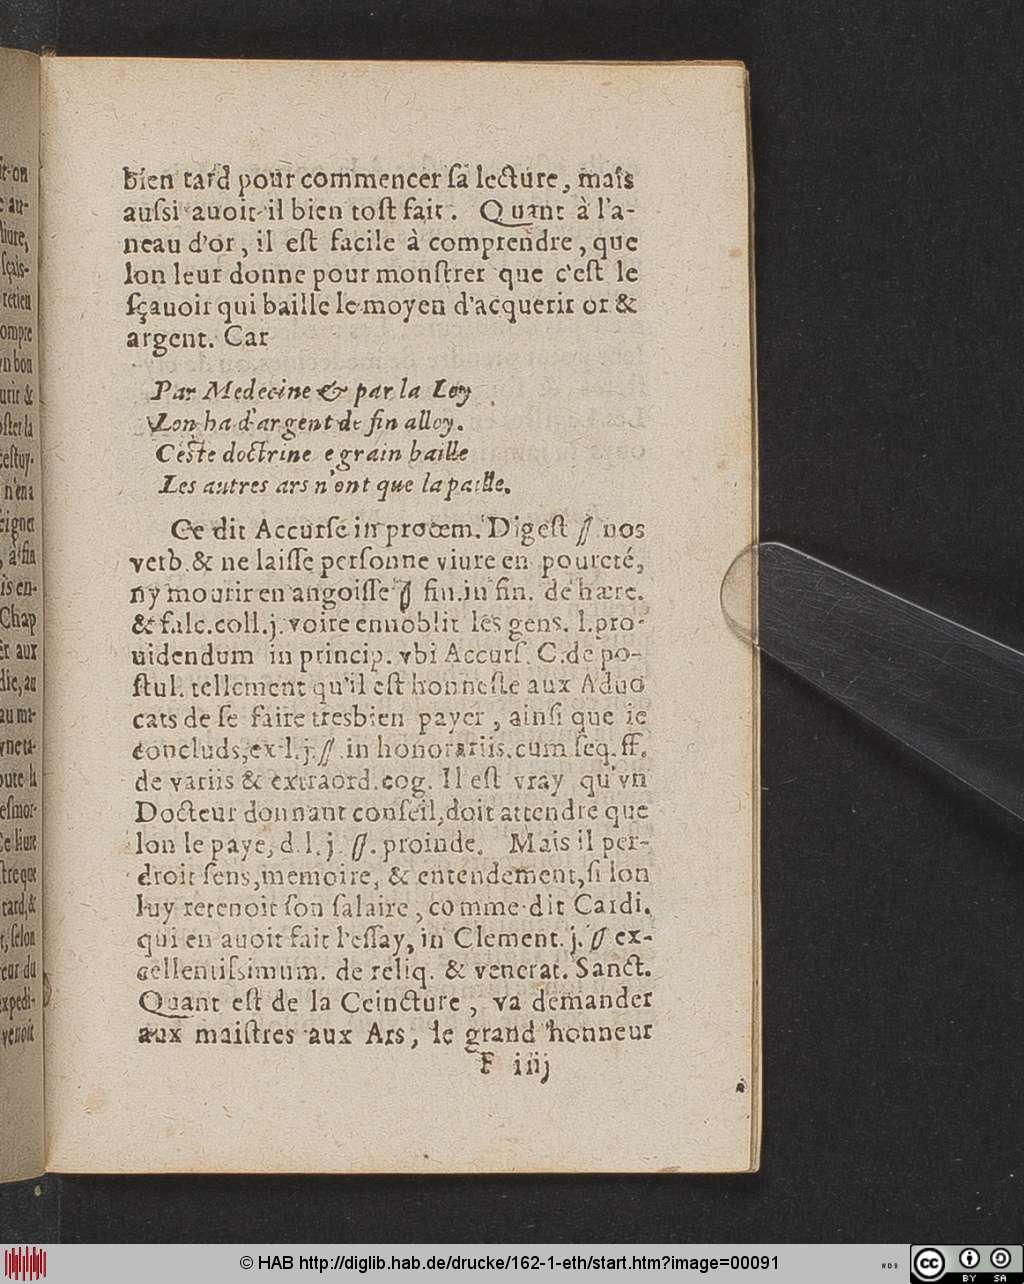 bien tard pour commencer ſa lecture, mais
auſsi auoit-il bien toſt fait. Quant à l'a-
neau d'or, il eſt facile à comprendre, que
lon leur donne pour monſtrer que c'eſt le
ſçauoir qui baille le moyen d'acquerir or &
argent. Car
Par Medecine & par la Loy
Lon ha d'argent de fin alloy.
Ceſte doctrine e grain baille
Les autres ars n'ont que la paille.
Ce dit Accurſe in proœm. Digeſt ſſ nos
verb. & ne laiſſe perſonne viure en poureté,
ny mourir en angoiſſe ſſ fin.in fin. de hære.
& falc.coll.j. voire ennoblit les gens. l.pro-
uidendum in princip. vbi Accurſ. C.de po-
ſtul. tellement qu'il eſt honneſte aux Aduo
cats de ſe faire tresbien payer, ainſi que ie
concluds, ex l.j. ſſ.in honorariis.cum ſeq. ff.
de variis & extraord.cog. Il eſt vray qu'vn
Docteur donnant conſeil, doit attendre que
lon le paye, d. l. j. ſſ. proinde. Mais il per-
droit ſens, memoire, & entendement, ſi lon
luy retenoit ſon ſalaire, comme dit Cardi.
qui en auoit fait l'eſſay, in Clement. j. ſſ ex-
cellentiſsimum. de reliq. & venerat. Sanct.
Quant eſt de la Ceincture, va demander
aux maiſtres aux Ars, le grand honneur
F iiij
© HAB http://diglib.hab.de/drucke/162-1-eth/start.htm?image=00091
cc BY SA